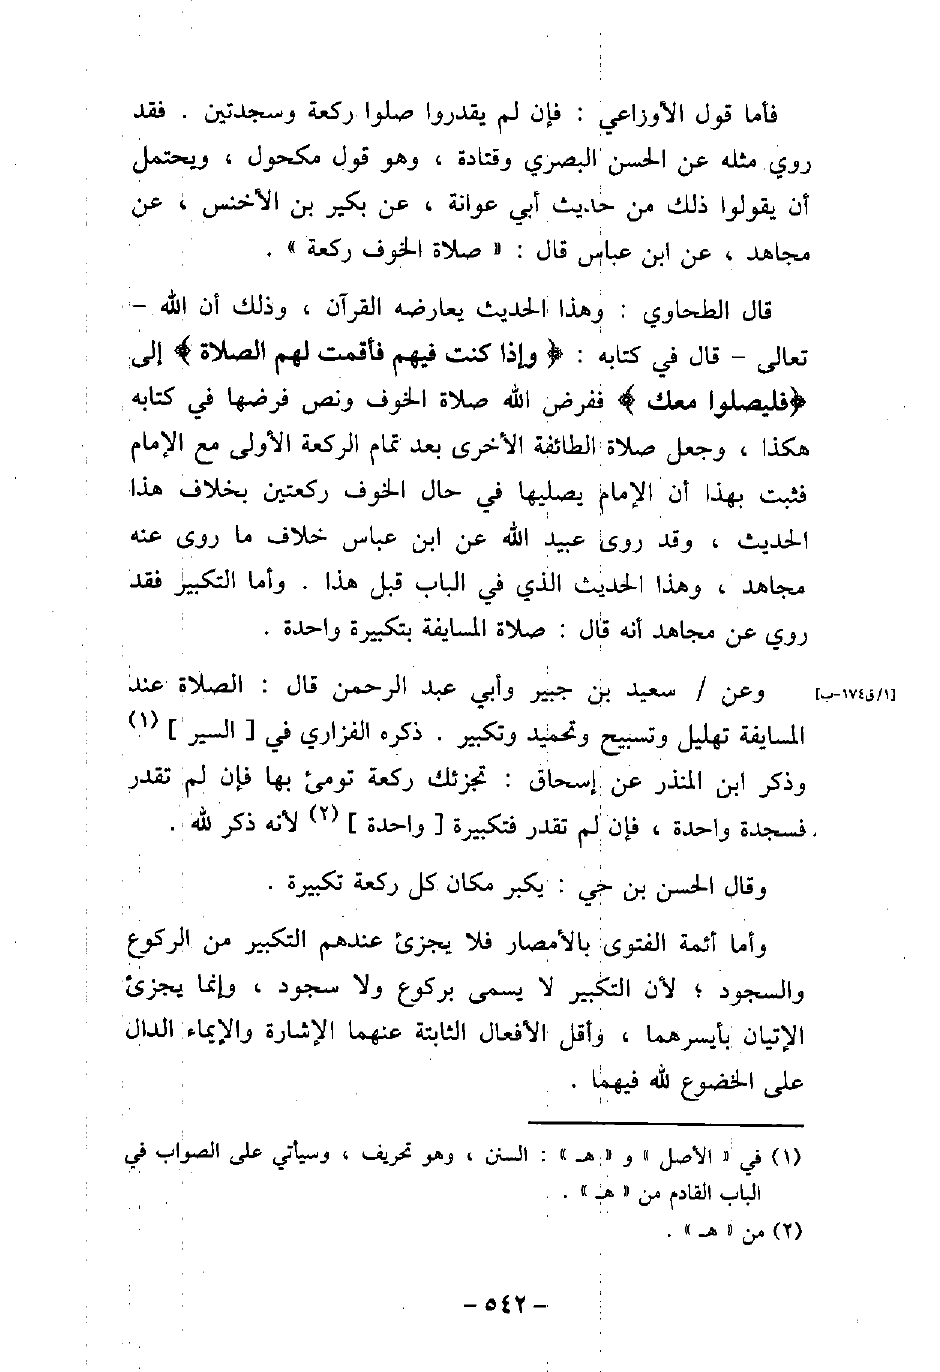 فأما قول الأوزاعي : فإن لم يقدروا صلوا ركعة وسجدتين . فقد
روي مثله عن الحسن البصري وقتادة ، وهو قول مكحول ، ويحتمل
أن يقولوا ذلك من حديث أبي عوانة ، عن بكير بن الأخنس ، عن
مجاهد ، عن ابن عباس قال : « صلاة الخوف ركعة » .
قال الطحاوي : وهذا الحديث يعارضه القرآن ، وذلك أن الله –
تعالى – قال في كتابه : ﴿ وإذا كنت فيهم فأقمت لهم الصلاة ﴾ إلى
﴿فليصلوا معك ﴾ ففرض الله صلاة الخوف ونص فرضها في كتابه
هكذا ، وجعل صلاة الطائفة الأخرى بعد تمام الركعة الأولى مع الإمام
فثبت بهذا أن الإمام يصليها في حال الخوف ركعتين بخلاف هذا
الحديث ، وقد روى عبيد الله عن ابن عباس خلاف ما روى عنه
مجاهد ، وهذا الحديث الذي في الباب قبل هذا . وأما التكبير فقد
روي عن مجاهد أنه قال : صلاة المسايفة بتكبيرة واحدة .
[١/ق١٧٤-ب] وعن / سعيد بن جبير وأبي عبد الرحمن قال : الصلاة عند
المسايفة تهليل وتسبيح وتحميد وتكبير . ذكره الفزاري في [ السير ] (١)
وذكر ابن المنذر عن إسحاق : تجزئك ركعة تومئ بها فإن لم تقدر
فسجدة واحدة ، فإن لم تقدر فتكبيرة [ واحدة ] (٢) لأنه ذكر لله .
وقال الحسن بن حي : يكبر مكان كل ركعة تكبيرة .
وأما أئمة الفتوى بالأمصار فلا يجزئ عندهم التكبير من الركوع
والسجود ؛ لأن التكبير لا يسمى بركوع ولا سجود ، وإنما يجزئ
الإتيان بأيسرهما ، وأقل الأفعال الثابتة عنهما الإشارة والإيماء الدال
على الخضوع لله فيهما .
(١) في « الأصل » و « هـ » : السنن ، وهو تحريف ، وسيأتي على الصواب في
الباب القادم من « هـ » .
(٢) من « هـ » .
– ٥٤٢ –